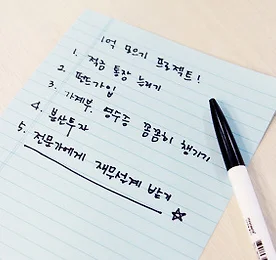 1억 모으기 프로젝트!
1. 적금 통장 늘리기
2. 펀드가입
3. 가계부. 영수증 꼼꼼히 챙기기
4. 분산투자
5. 전문가에게 재무설계 받기 ☆